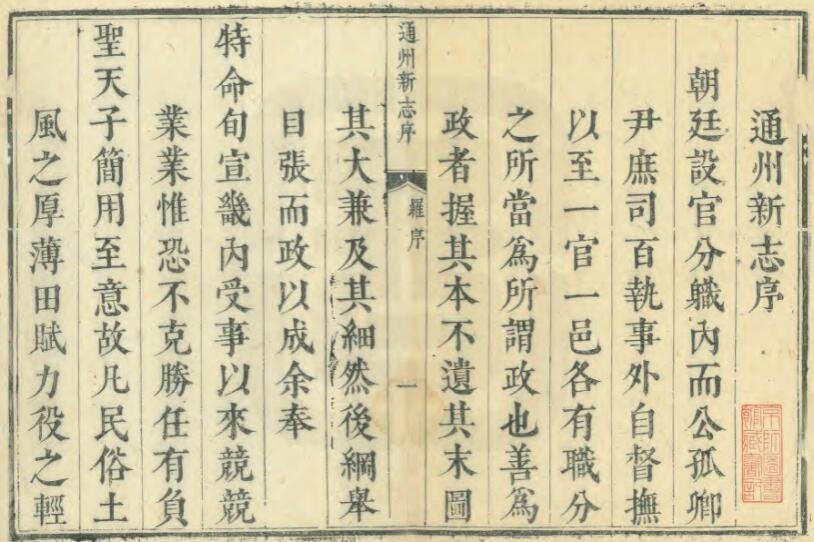 通州新志序
朝廷設官分職內而公孤卿
尹庶司百執事外自督撫
以至一官一邑各有職分
之所當爲所謂政也善爲
政者握其本不遺其末圖
通州新志序
羅序
一
其大兼及其細然後綱舉
目張而政以成余奉
特命旬宣畿內受事以來競競
業業惟恐不克勝任有負
聖天子簡用至意故凡民俗土
風之厚薄田賦力役之輕
京師圖書
館藏書記